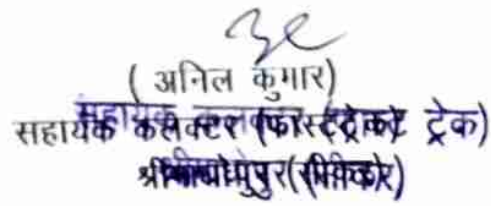 ( अनिल कुमार)
सहायक कलेक्टर (फास्ट ट्रेक)
श्रीमाधोपुर (सीकर)